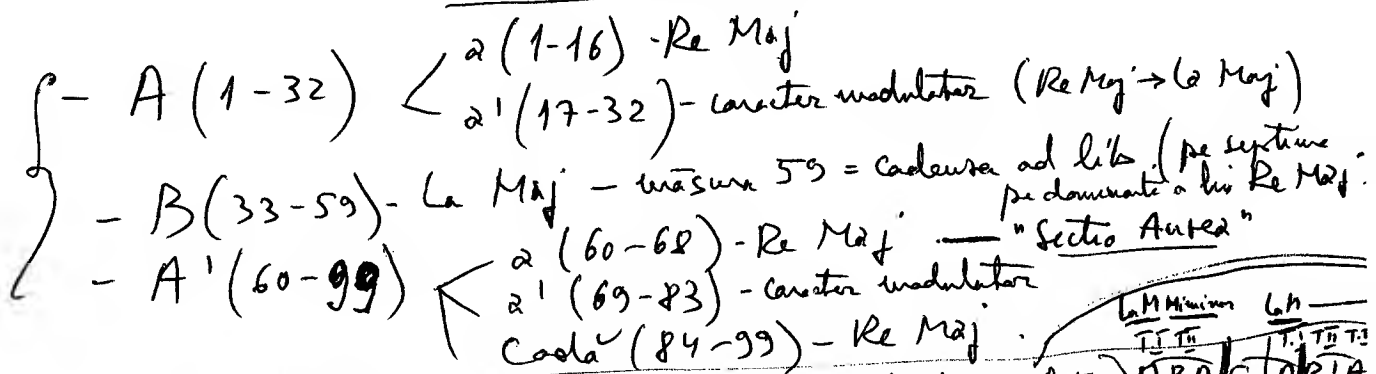 - A (1-32) < a (1-16) - Re Maj
a' (17-32) - caracter modulator (Re Maj → La Maj)
- B (33-59) - La Maj - măsura 59 = cadenza ad lib. (pe septima
pe dominanta a lui Re Maj.
- A' (60-99) < a (60-68) - Re Maj — "Sectio Aurea"
a' (69-83) - caracter modulator
Coda (84-99) - Re Maj.
LaM Mi minor LaM
T.I T.II T.I T.II T.I